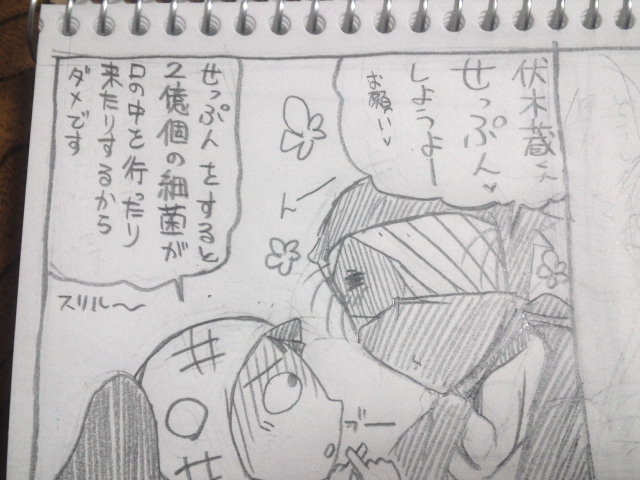 伏木蔵ぇ
せっぷん♥
しようよー
お願い♥
ん
せっぷんをすると
2億個の細菌が
口の中を行ったり
来たりするから
ダメです
スリル〜
ブー